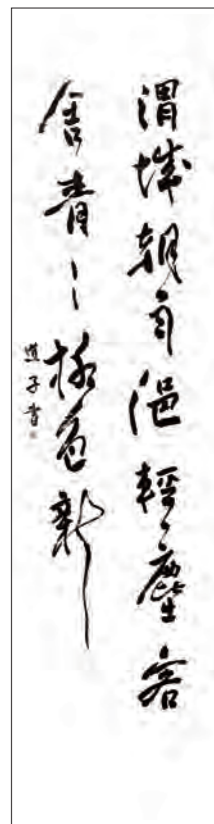 渭城朝雨浥軽塵客
舎青々柳色新
道子書